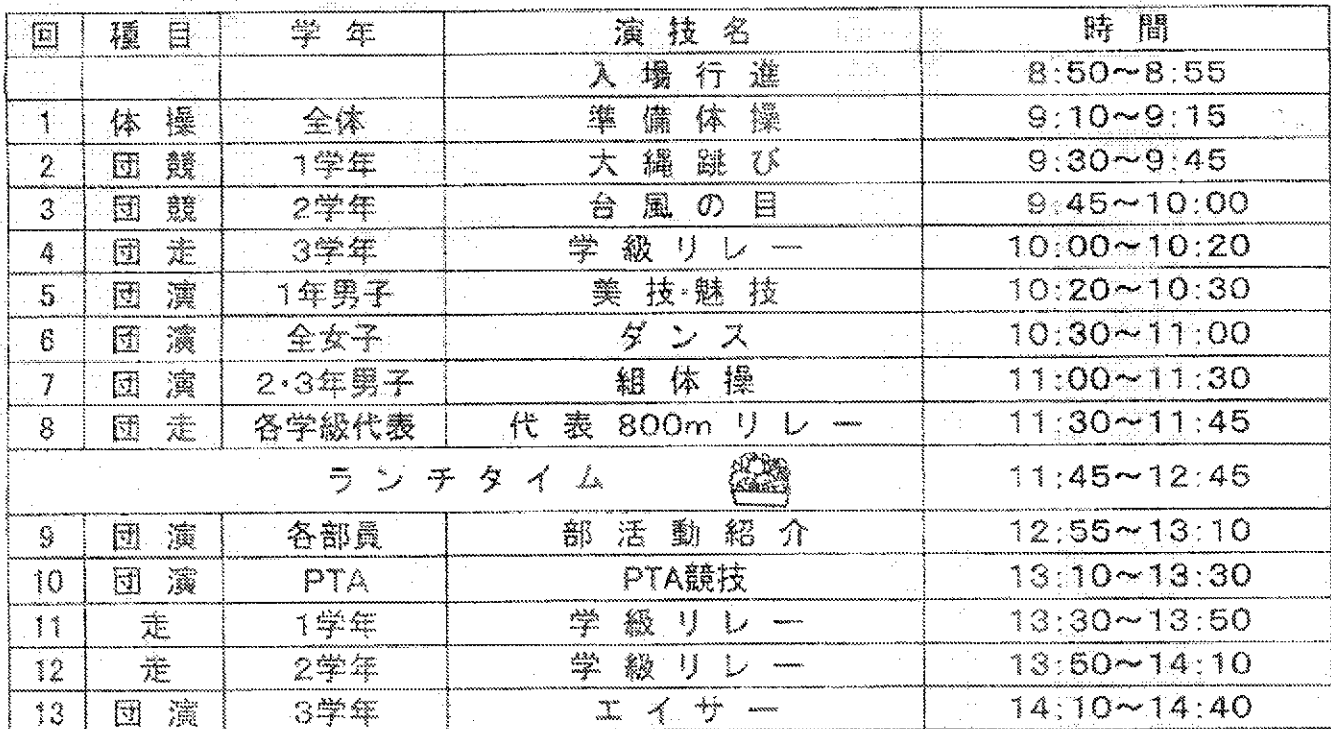 回 種目 学年 演技名 時間
入場行進 8:50~8:55
1 体操 全体 準備体操 9:10~9:15
2 団競 1学年 大縄跳び 9:30~9:45
3 団競 2学年 台風の目 9:45~10:00
4 団走 3学年 学級リレー 10:00~10:20
5 団演 1年男子 美技・魅技 10:20~10:30
6 団演 全女子 ダンス 10:30~11:00
7 団演 2・3年男子 組体操 11:00~11:30
8 団走 各学級代表 代表800mリレー 11:30~11:45
ランチタイム 11:45~12:45
9 団演 各部員 部活動紹介 12:55~13:10
10 団演 PTA PTA競技 13:10~13:30
11 走 1学年 学級リレー 13:30~13:50
12 走 2学年 学級リレー 13:50~14:10
13 団演 3学年 エイサー 14:10~14:40